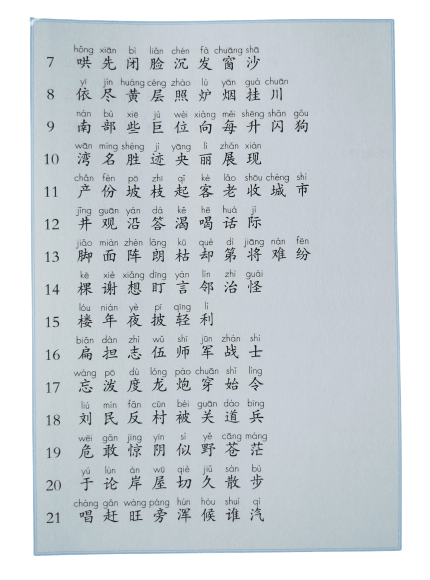 hōng xiān bì liǎn chén fā chuāng shā
7 哄 先 闭 脸 沉 发 窗 沙
yī jìn huáng céng zhào lú yān guà chuān
8 依 尽 黄 层 照 炉 烟 挂 川
nán bù xiē jù wèi xiàng měi shēng shǎn gǒu
9 南 部 些 巨 位 向 每 升 闪 狗
wān míng shèng jì yāng lì zhǎn xiàn
10 湾 名 胜 迹 央 丽 展 现
chǎn fèn pō zhī qǐ kè lǎo shōu chéng shì
11 产 份 坡 枝 起 客 老 收 城 市
jǐng guān yán dá kě hē huà jì
12 井 观 沿 答 渴 喝 话 际
jiǎo miàn zhèn lǎng kū què dì jiāng nán fēn
13 脚 面 阵 朗 枯 却 第 将 难 纷
kē xiè xiǎng dīng yán lín zhì guài
14 棵 谢 想 盯 言 邻 治 怪
lóu nián yè pī qīng lì
15 楼 年 夜 披 轻 利
biǎn dān zhì wǔ shī jūn zhàn shì
16 扁 担 志 伍 师 军 战 士
wàng pō dù lóng pào chuān shǐ lìng
17 忘 泼 度 龙 炮 穿 始 令
liú mín fǎn cūn bèi guān dào bīng
18 刘 民 反 村 被 关 道 兵
wēi gǎn jīng yīn sì yě cāng máng
19 危 敢 惊 阴 似 野 苍 茫
yú lùn àn wū qiè jiǔ sàn bù
20 于 论 岸 屋 切 久 散 步
chàng gǎn wàng páng hún hòu shuí qì
21 唱 赶 旺 旁 浑 候 谁 汽